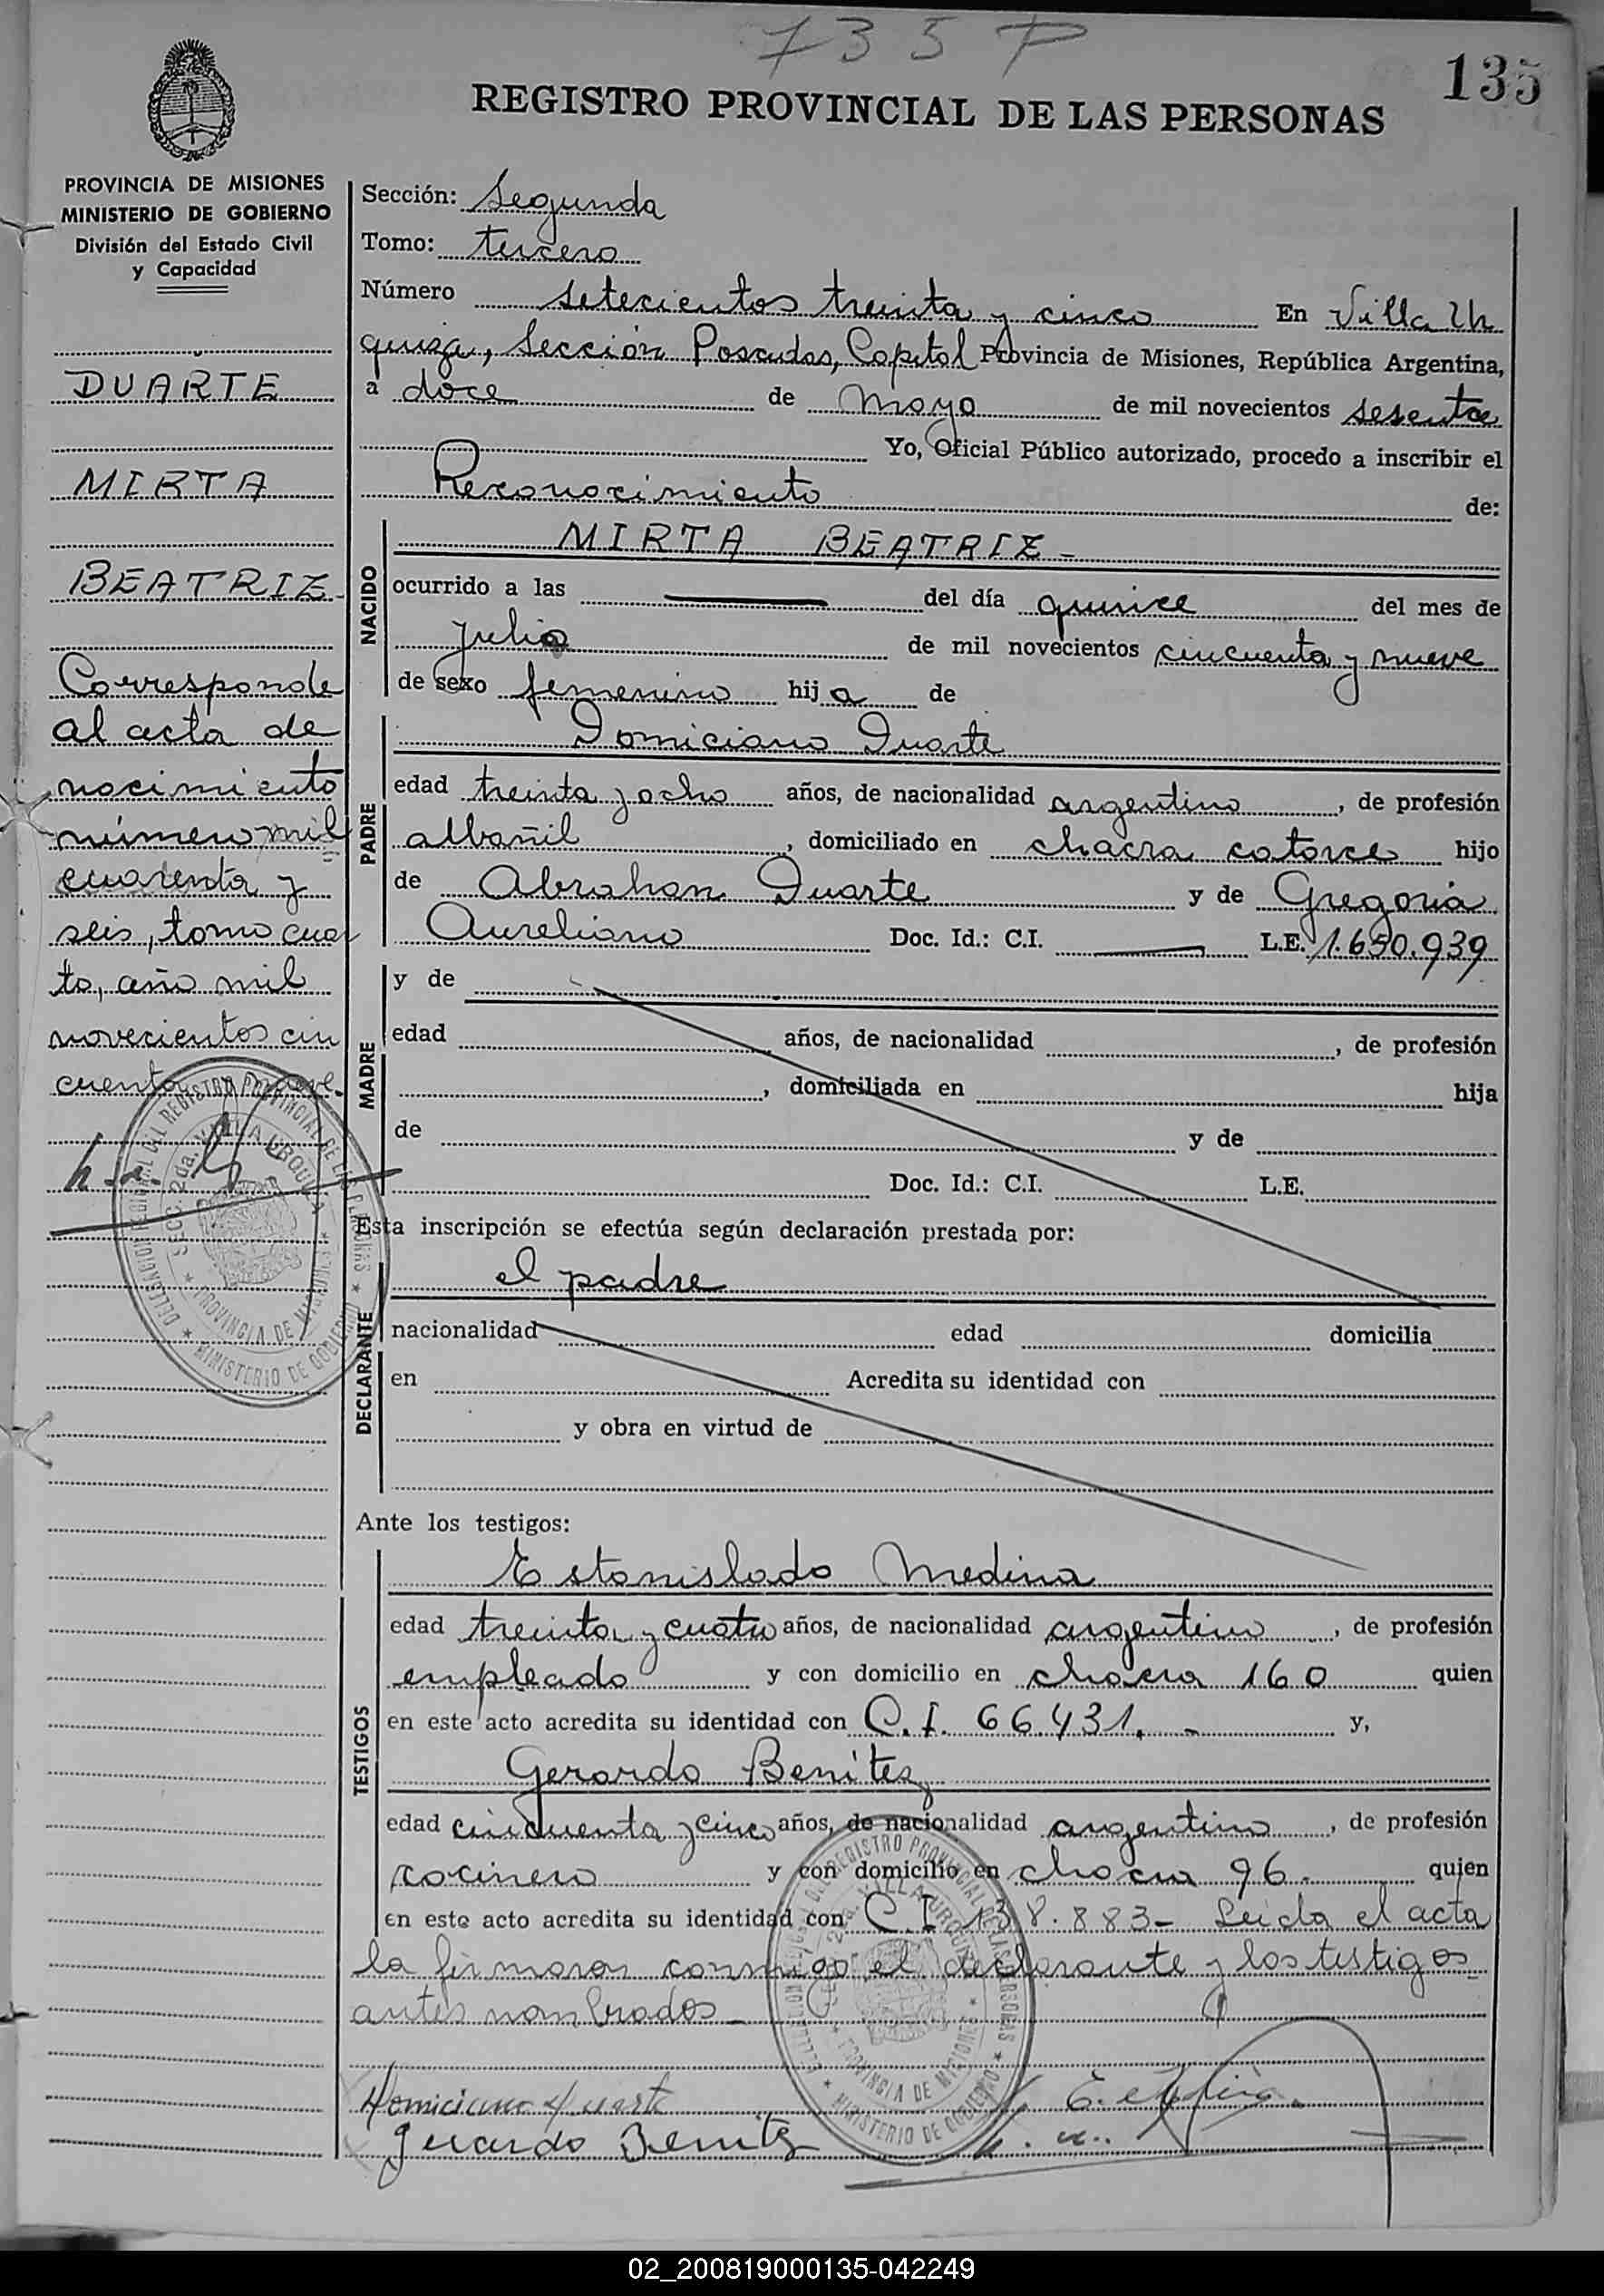 735 P
135
REGISTRO PROVINCIAL DE LAS PERSONAS
PROVINCIA DE MISIONES
MINISTERIO DE GOBIERNO
División del Estado Civil
y Capacidad
DUARTE
MIRTA
BEATRIZ
Corresponde
al acta de
nacimiento
número mil
cuarenta y
seis, tomo cuar
to, año mil
novecientos cin
cuenta y nueve.
Sección: Segunda
Tomo: tercero
Número setecientos treinta y cinco En Villa Ur
quiza, Sección Posadas, Capital Provincia de Misiones, República Argentina,
a doce de mayo de mil novecientos sesenta
Yo, Oficial Público autorizado, procedo a inscribir el
Reconocimiento de:
NACIDO
MIRTA BEATRIZ -
ocurrido a las del día quince del mes de
Julio de mil novecientos cincuenta y nueve
de sexo femenino hija de
PADRE
Domiciano Duarte
edad treinta y ocho años, de nacionalidad argentino, de profesión
albañil, domiciliado en chacra catorce hijo
de Abrahan Duarte y de Gregoria
Aureliano Doc. Id.: C.I. L.E. 1.650.939
MADRE
y de
edad años, de nacionalidad , de profesión
, domiciliada en hija
de y de
Doc. Id.: C.I. L.E.
Esta inscripción se efectúa según declaración prestada por:
DECLARANTE
el padre
nacionalidad edad domicilia
en Acredita su identidad con
y obra en virtud de
Ante los testigos:
TESTIGOS
Estanislado Medina
edad treinta y cuatro años, de nacionalidad argentino, de profesión
empleado y con domicilio en chacra 160 quien
en este acto acredita su identidad con C.I. 66.431. - y,
Gerardo Benitez
edad cincuenta y cinco años, de nacionalidad argentino, de profesión
cocinero y con domicilio en chacra 96. quien
en este acto acredita su identidad con C.I 138.883- Leida el acta
la firmaron conmigo el declarante y los testigos
antes nombrados -
Domiciano Duarte
Gerardo Benitez
DELEGACION REGIONAL DEL REGISTRO PROVINCIAL DE LAS PERSONAS
SECC. 2da. VILLA URQUIZA
PROVINCIA DE MISIONES
MINISTERIO DE GOBIERNO
02_200819000135-042249